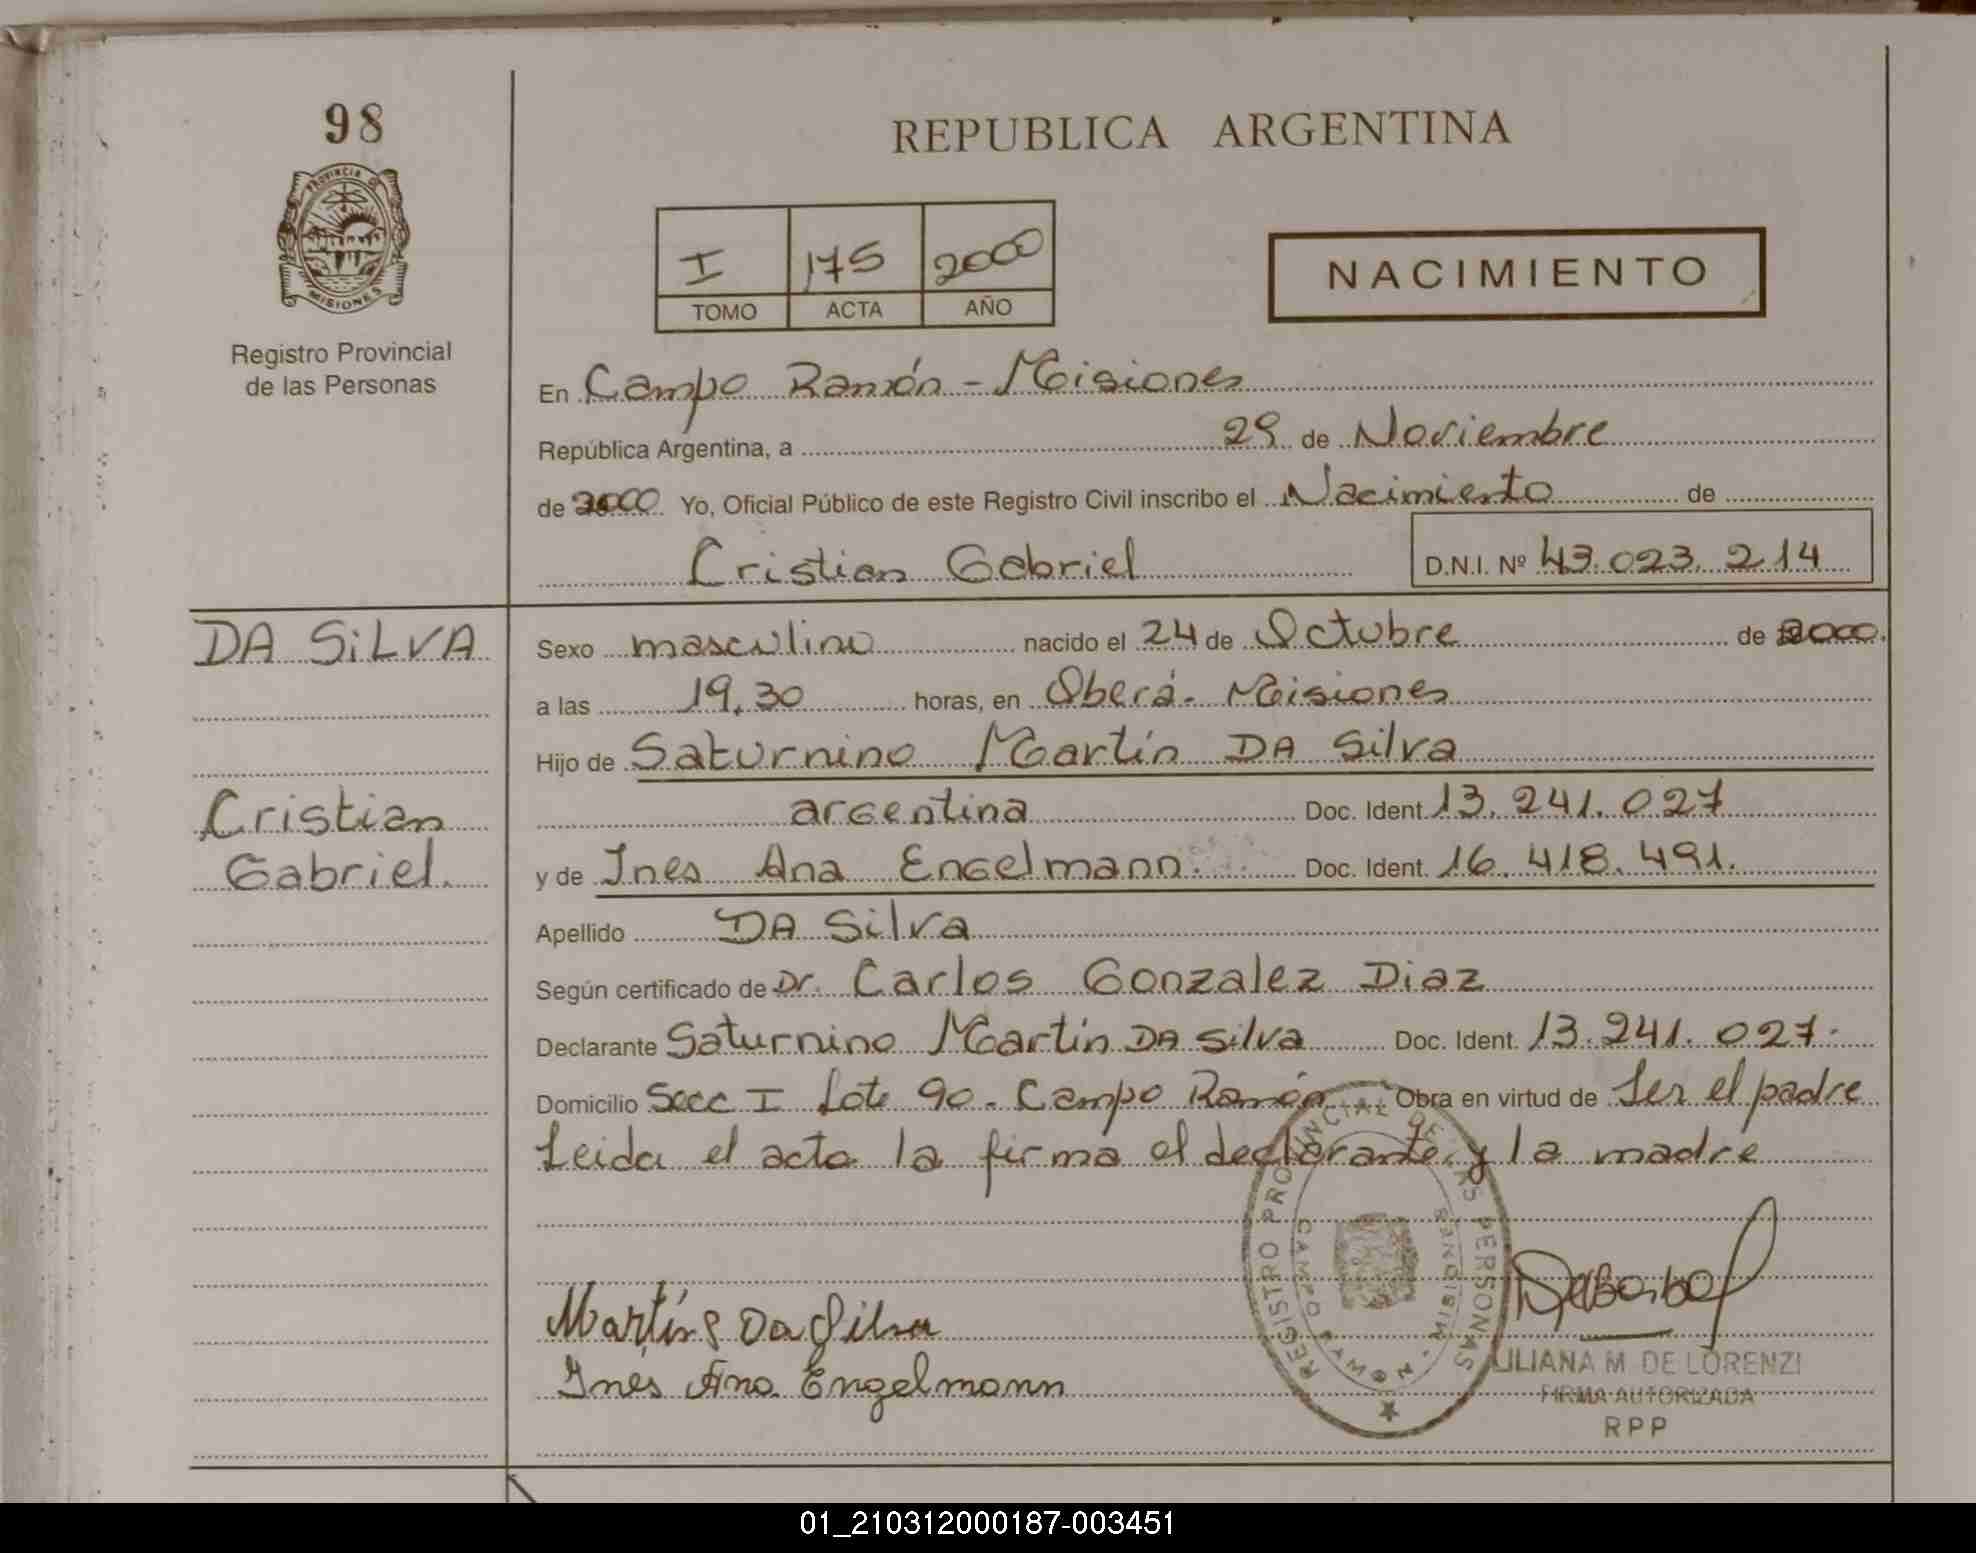 98
REPUBLICA ARGENTINA
PROVINCIA DE
MISIONES
Registro Provincial
de las Personas
I 175 2000
TOMO ACTA AÑO
NACIMIENTO
En Campo Ramón - Misiones
República Argentina, a 29 de Noviembre
de 2000 Yo, Oficial Público de este Registro Civil inscribo el Nacimiento de
Cristian Gabriel D.N.I. Nº 43.023.214
DA SiLVA
Cristian
Gabriel.
Sexo masculino nacido el 24 de Octubre de 2000.
a las 19.30 horas, en Oberá - Misiones
Hijo de Saturnino Martín DA Silva
argentina Doc. Ident. 13.241.027
y de Ines Ana Engelmann. Doc. Ident. 16.418.491.
Apellido DA Silva
Según certificado de Dr. Carlos Gonzalez Diaz
Declarante Saturnino Martín DA Silva Doc. Ident. 13.241.027.
Domicilio Secc I Lote 90 - Campo Ramón Obra en virtud de Ser el padre
Leida el acta la firma el declarante y la madre
Martín S Da Silva
Inés Ana Engelmann
REGISTRO PROVINCIAL DE LAS PERSONAS
CAMPO RAMON - MISIONES
LILIANA M. DE LORENZI
FIRMA AUTORIZADA
RPP
01_210312000187-003451